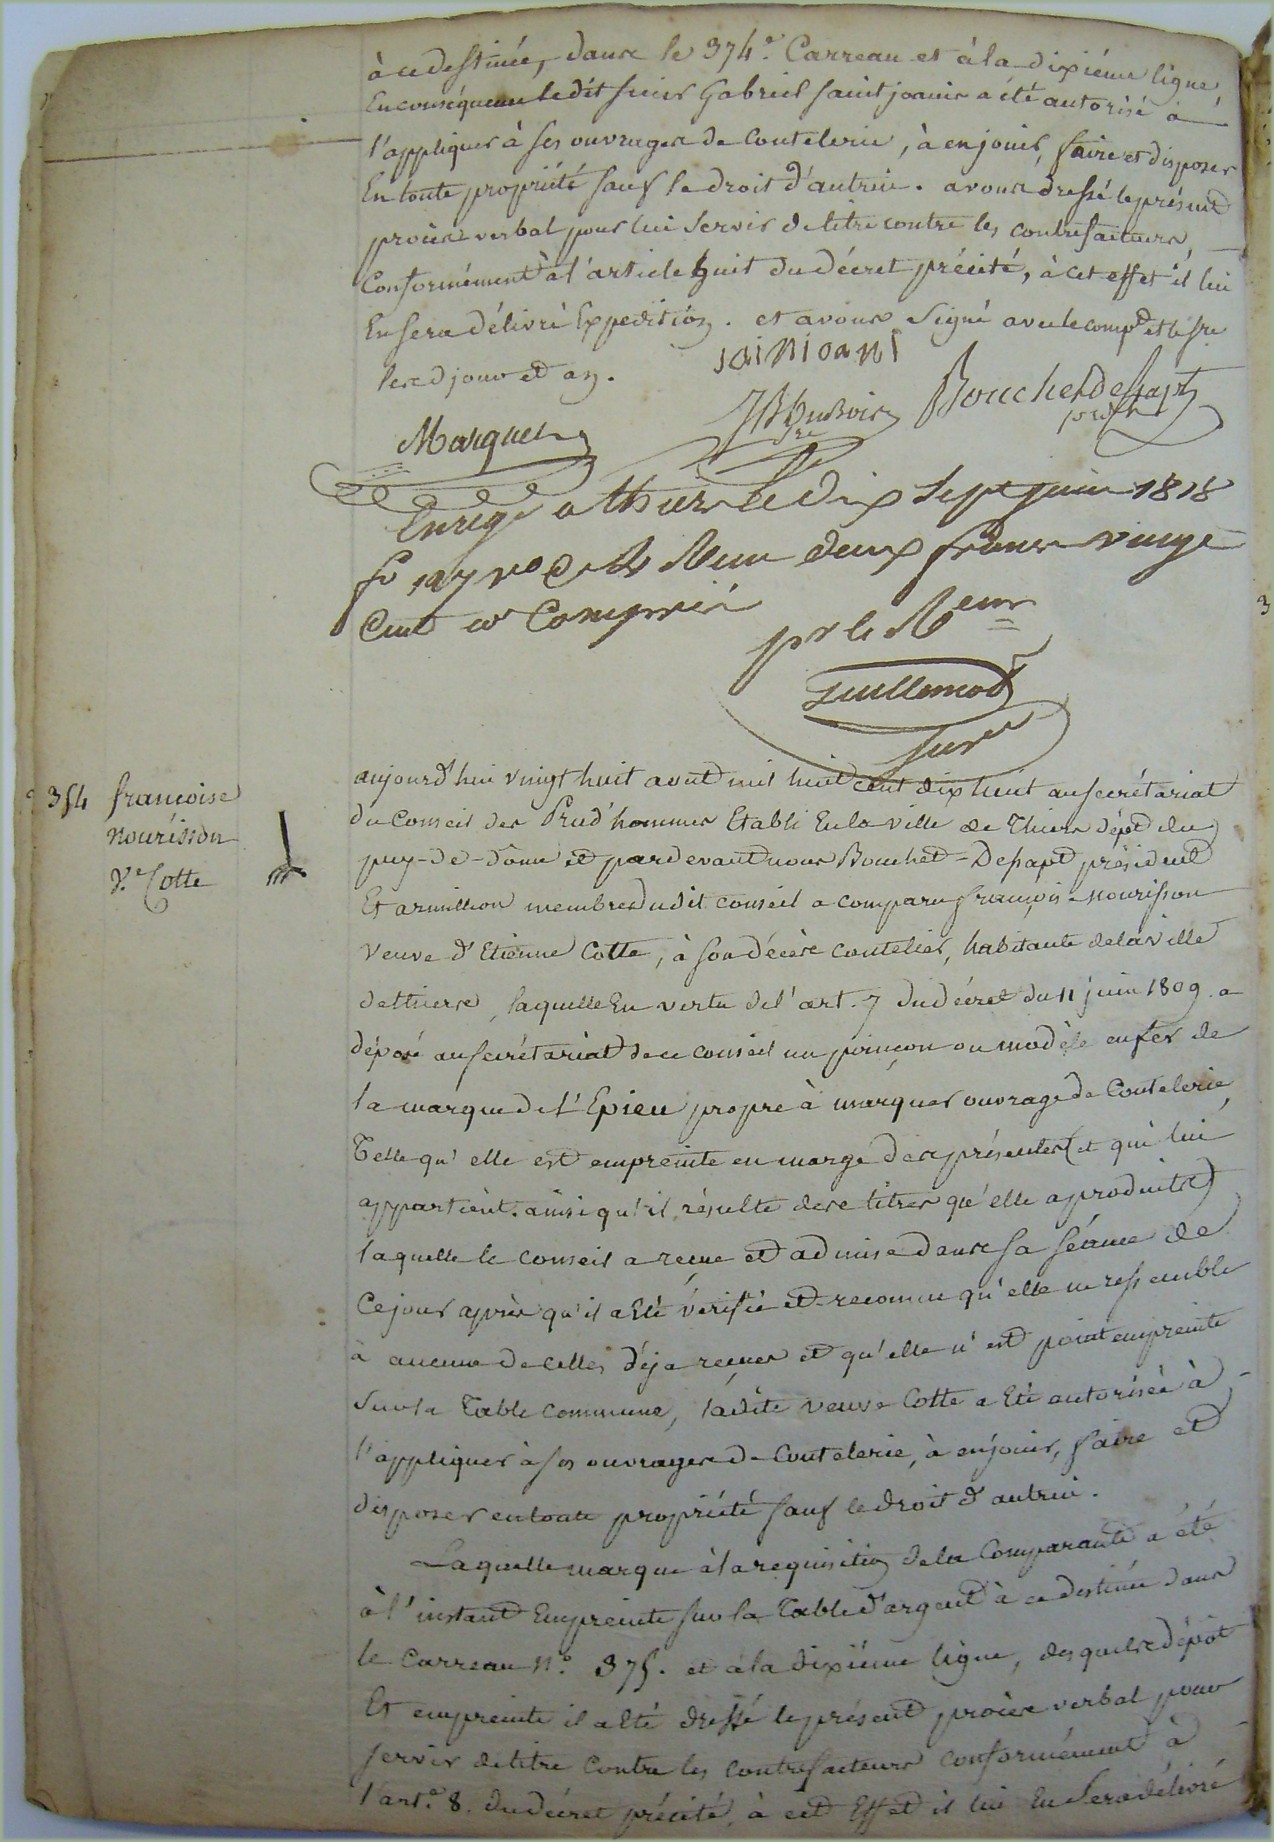 à ce destinée, dans le 374.e Carreau et à la dixiéme ligne
En conséquence ledit sieur Gabriel saintjoanis a été autorisé à
l'appliquer à ses ouvrages de Coutelerie, à en jouir, faire et disposer
En toute propriété sauf le droit d'autrui. avons dressé le présent
procès verbal pour lui servir de titre contre les contrefaiteurs,
Conformément à l'article huit du décret précité, à cet effet il lui
En sera délivré Expedition. et avons signé avec le comp.t et le s.re
lesd jour et an.
sainioani
Marquet
JB Dubois
s.re
Bouchet Desapt
presidt
Enregé a thiers le dix sept juin 1818
f.o 127 v.o C.e Reçu deux francs vingt
Cent. Compris
p.r le R.eur
Guillemot
354
francoise
nourisson
V.e Cotte
aujourd'hui vingt huit aout mil huit cent dix huit au secrétariat
du Conseil des Prud'hommes Etabli En la ville de Thiers dépt du
puy-de-dôme et pardevant nous Bouchet-Desapt président
Et armillion membres dudit conseil a comparu françoise nourisson
Veuve d'Etienne Cotte, à son décès coutelier, habitante de la ville
de thiers, laquelle En vertu de l'art. 7 du décret du 11 juin 1809. a
déposé au secrétariat de ce conseil un poinçon ou modèle en fer de
la marque de l'Epieu propre à marquer ouvrage de Coutelerie,
Telle qu'elle est empreinte en marge des présentes (et qui lui
appartient. ainsi qu'il résulte des titres qu'elle a produits)
laquelle le conseil a reçue et admise dans sa séance de
Ce jour après qu'il a Eté vérifié et reconnu qu'elle ne ressemble
à aucune de celles déja reçues et qu'elle n'est point empreinte
Sur la Table commune, ladite veuve Cotte a Eté autorisée à
l'appliquer à ses ouvrages de Coutelerie, à en jouir, faire et
disposer en toute propriété sauf le droit d'autrui.
Laquelle marque à la requisition de la Comparante a été
à l'instant Empreinte sur la Table d'argent à ce destinée dans
le Carreau N.o 375. et à la dixiéme ligne, desquels dépôt
Et empreinte il a Eté dressé le présent procès verbal pour
servir de titre Contre les contrefaiteurs conformément à
l'art.e 8. du décret précité, à cet Effet il lui En Sera délivré